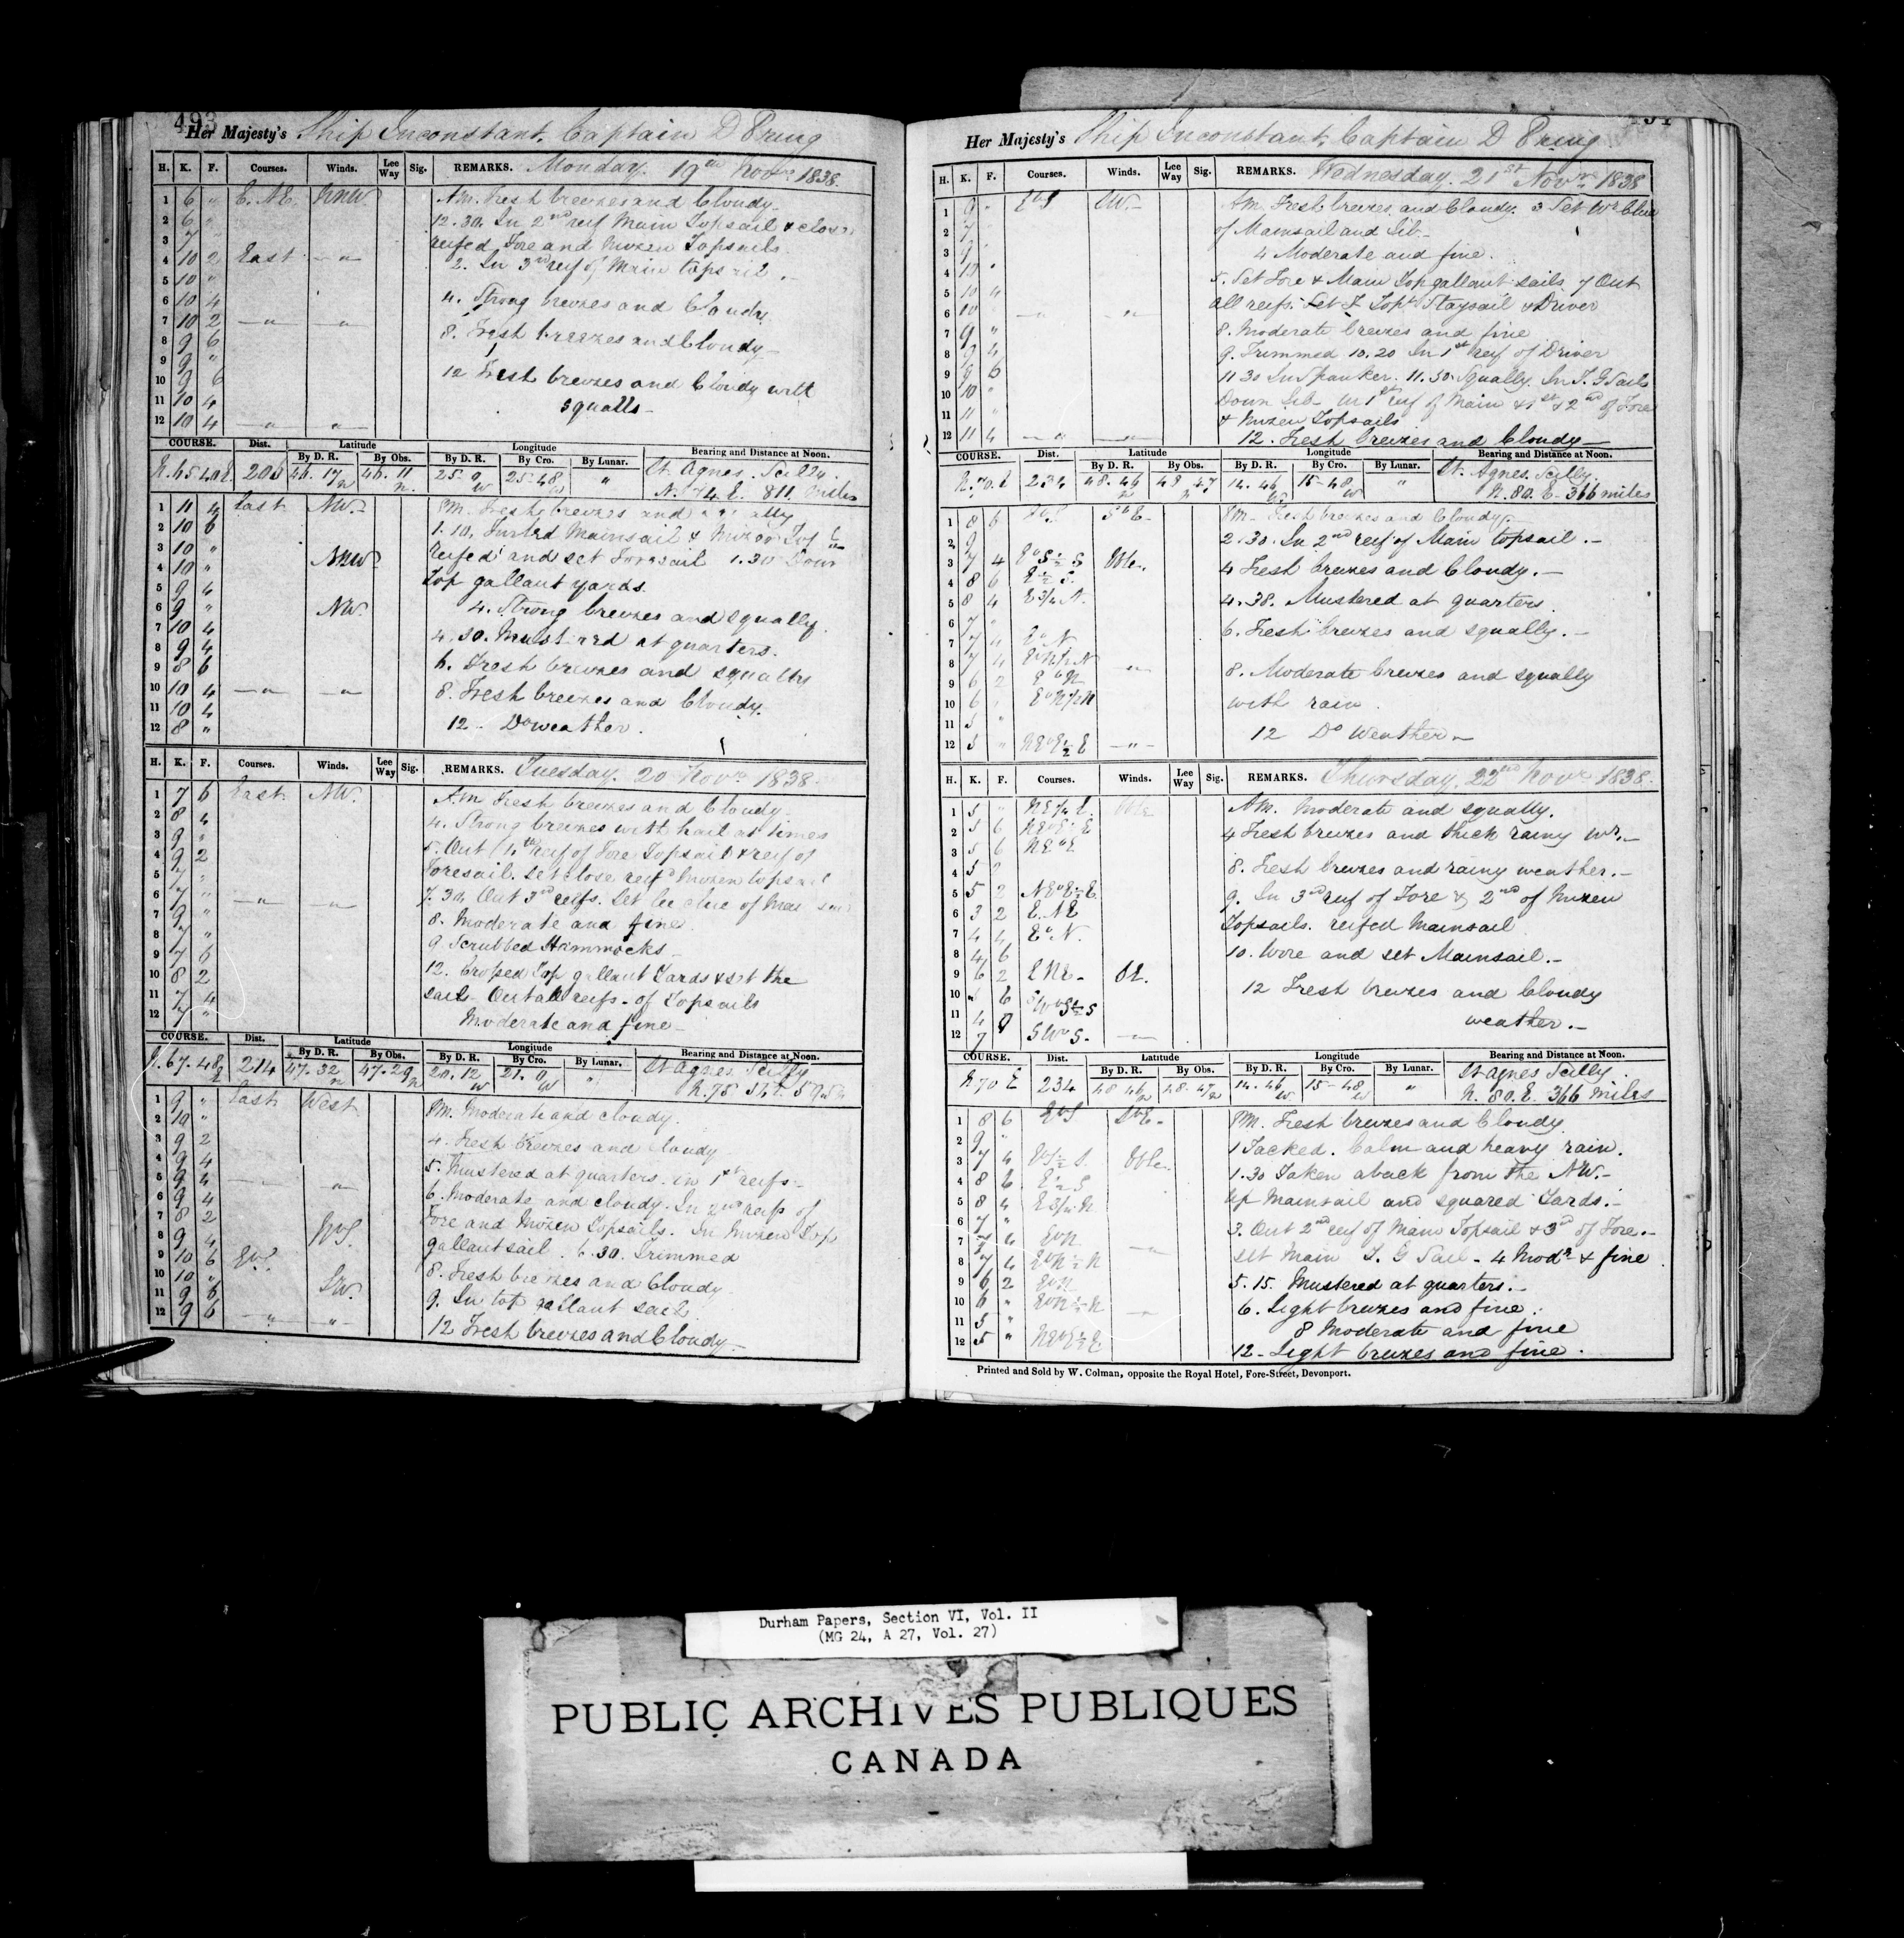 493
Her Majesty's Ship Inconstant. Captain D Pring
H. K. F. Courses. Winds. Lee Way Sig. REMARKS. Monday. 19th Novr. 1838.
1 6 " E. NE. NNW. AM. Fresh breezes and Cloudy.
2 6 " 12.30. In 2nd reef Main Topsail & close
3 7 reefed Fore and Mizen Topsails
4 10 2 East 2. In 3rd reef of Main topsail.
5 10 "
6 10 4 4. Strong breezes and Cloudy
7 10 2 8. Fresh breezes and Cloudy
8 9 6
9 9 "
10 9 6 12 Fresh breezes and Cloudy with
11 10 4 squalls
12 10 4
COURSE. Dist. Latitude Longitude Bearing and Distance at Noon.
By D. R. By Obs. By D. R. By Cro. By Lunar.
N. 65.40 E 206 46.17 N 46.11 N. 25.9 W 25.48 W " St. Agnes. Scilly.
N. 74. E. 811. Miles
1 11 4 East NW. PM. Fresh breezes and
2 10 6 1.10. Furled Mainsail & Mizen
3 10 " NNW reefed and set Foresail 1.30 Down
4 10 " Top gallant yards.
5 9 4
6 9 " NW. 4. Strong breezes and squally.
7 10 4 4.30. Mustered at quarters.
8 9 4
9 8 6 6. Fresh breezes and squally
10 10 4 8. Fresh breezes and Cloudy.
11 10 4
12 8 " 12 - Do weather.
H. K. F. Courses. Winds. Lee Way Sig. REMARKS. Tuesday. 20 Novr. 1838.
1 7 6 East NW. AM Fresh breezes and Cloudy
2 8 4 4. Strong breezes with hail at times
3 9 " 5. Out 4th reef of Fore Topsail & reef of
4 9 2 Foresail. Set close reefd Mizen topsail
5 7 "
6 7 " 7.30. Out 3rd reefs. Set lee clue of Mainsail
7 9 " 8. Moderate and fine
8 7 " 9. Scrubbed Hammocks
9 7 6
10 8 2 12. Crossed Top gallant Yards & set the
11 7 4 sails Out all reefs of Topsails
12 7 " Moderate and fine
COURSE. Dist. Latitude Longitude Bearing and Distance at Noon.
By D. R. By Obs. By D. R. By Cro. By Lunar.
N. 67.48 E 214 47.32 N 47.29 N 20.12 W 21.0 W " St Agnes Scilly
1 9 " East West PM. Moderate and cloudy.
2 10 "
3 9 2 4. Fresh breezes and cloudy
4 9 4
5 9 4 5. Mustered at quarters. in 1st reefs
6 9 4 6. Moderate and cloudy. In 2nd reefs of
7 8 2 Fore and Mizen Topsails. In Mizen Top
8 9 4 WbS. gallant sail. 6.30. Trimmed
9 10 6 EbS. 8. Fresh breezes and Cloudy
10 10 " SW. 9. In top gallant sails
11 9 6
12 9 6 12 Fresh breezes and Cloudy.
Her Majesty's Ship Inconstant. Captain D Pring
H. K. F. Courses. Winds. Lee Way Sig. REMARKS. Wednesday. 21st Novr. 1838
1 9 " EbS SW. AM. Fresh breezes and Cloudy. 3 Set Wr Clue
2 7 of Mainsail and Jib
3 9 4 Moderate and fine.
4 10 "
5 10 " 5. Set Fore & Main Topgallant sails. 7 Out
6 10 all reefs. Set F Topt Staysail & Driver
7 9 " 8. Moderate breezes and fine
8 9 4 9. Trimmed 10.20 In 1st reef of Driver
9 9 6 11 30 In Spanker. 11.30. Squally. In T. G Sails
10 10 " Down Jib In 1st reef of Main & 1st & 2nd of Fore
11 11 " & Mizen Topsails
12 11 4 12. Fresh breezes and Cloudy
COURSE. Dist. Latitude Longitude Bearing and Distance at Noon.
By D. R. By Obs. By D. R. By Cro. By Lunar.
N. 70. E 234 48.46 N 48 47 N 14.46 W. 15-48 W " St. Agnes. Scilly.
N. 80. E 366 miles
1 8 6 EbS SbE PM Fresh breezes and Cloudy.
2 9 2.30. In 2nd reef of Main topsail.
3 7 4 EbS½S Vble. 4 Fresh breezes and Cloudy.
4 8 6 E½S.
5 8 4 E¾N. 4.38. Mustered at quarters.
6 7 " 6. Fresh breezes and squally.
7 7 4 EbN
8 7 4 EbN½N 8. Moderate breezes and squally
9 6 2 EbN
10 6 " EbN½N with rain.
11 5 "
12 5 " NEbE½E 12 Do Weather
H. K. F. Courses. Winds. Lee Way Sig. REMARKS. Thursday. 22nd Novr. 1838.
1 5 " Vble AM. Moderate and squally.
2 5 6 NEbE½E 4 Fresh breezes and thick rainy wr.
3 5 6 NEbE
4 5 2 8. Fresh breezes and rainy weather.
5 5 2 NEbE½E. 9. In 3rd reef of Fore & 2nd of Mizen
6 3 2 E.NE Topsails. reefed Mainsail
7 4 4 EbN.
8 4 6 10. Wore and set Mainsail.
9 6 2 ENE
10 5 6 12 Fresh breezes and Cloudy
11 4 weather.
12 7 SWbS.
COURSE. Dist. Latitude Longitude Bearing and Distance at Noon.
By D. R. By Obs. By D. R. By Cro. By Lunar.
N. 70 E 234 48 46 N 48.47 N 14.46 W. 15-48 W " St Agnes Scilly.
N. 80. E. 366 miles
1 8 6 EbS SbE PM. Fresh breezes and Cloudy.
2 9 " 1 Tacked. Calm and heavy rain.
3 7 4 EbS½S. Vble. 1.30 Taken aback from the NW.
4 8 6 E½S
5 8 4 E¾N Up Mainsail and squared Yards.
6 7 " 3. Out 2nd reef of Main Topsail & 3rd of Fore.
7 7 4 EbN
8 7 4 EbN½N set Main T. G Sail - 4 Modr & fine
9 6 2 EbN 5.15. Mustered at quarters.
10 6 " EbN½N 6. Light breezes and fine.
11 5 " 8 Moderate and fine
12 5 " NEbE½E 12 - Light breezes and fine.
Printed and Sold by W. Colman, opposite the Royal Hotel, Fore-Street, Devonport.
Durham Papers, Section VI, Vol. II
(MG 24, A 27, Vol. 27)
PUBLIC ARCHIVES PUBLIQUES
CANADA